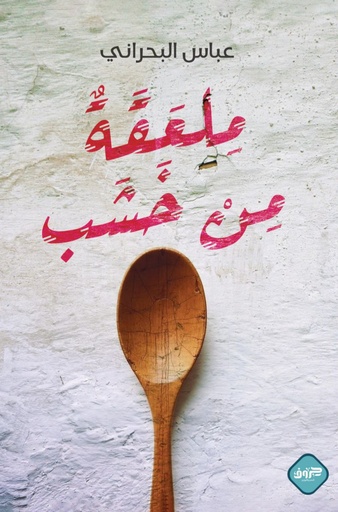 عباس البحراني
مِلعَقَةٌ
مِنْ خَشَب
حروف